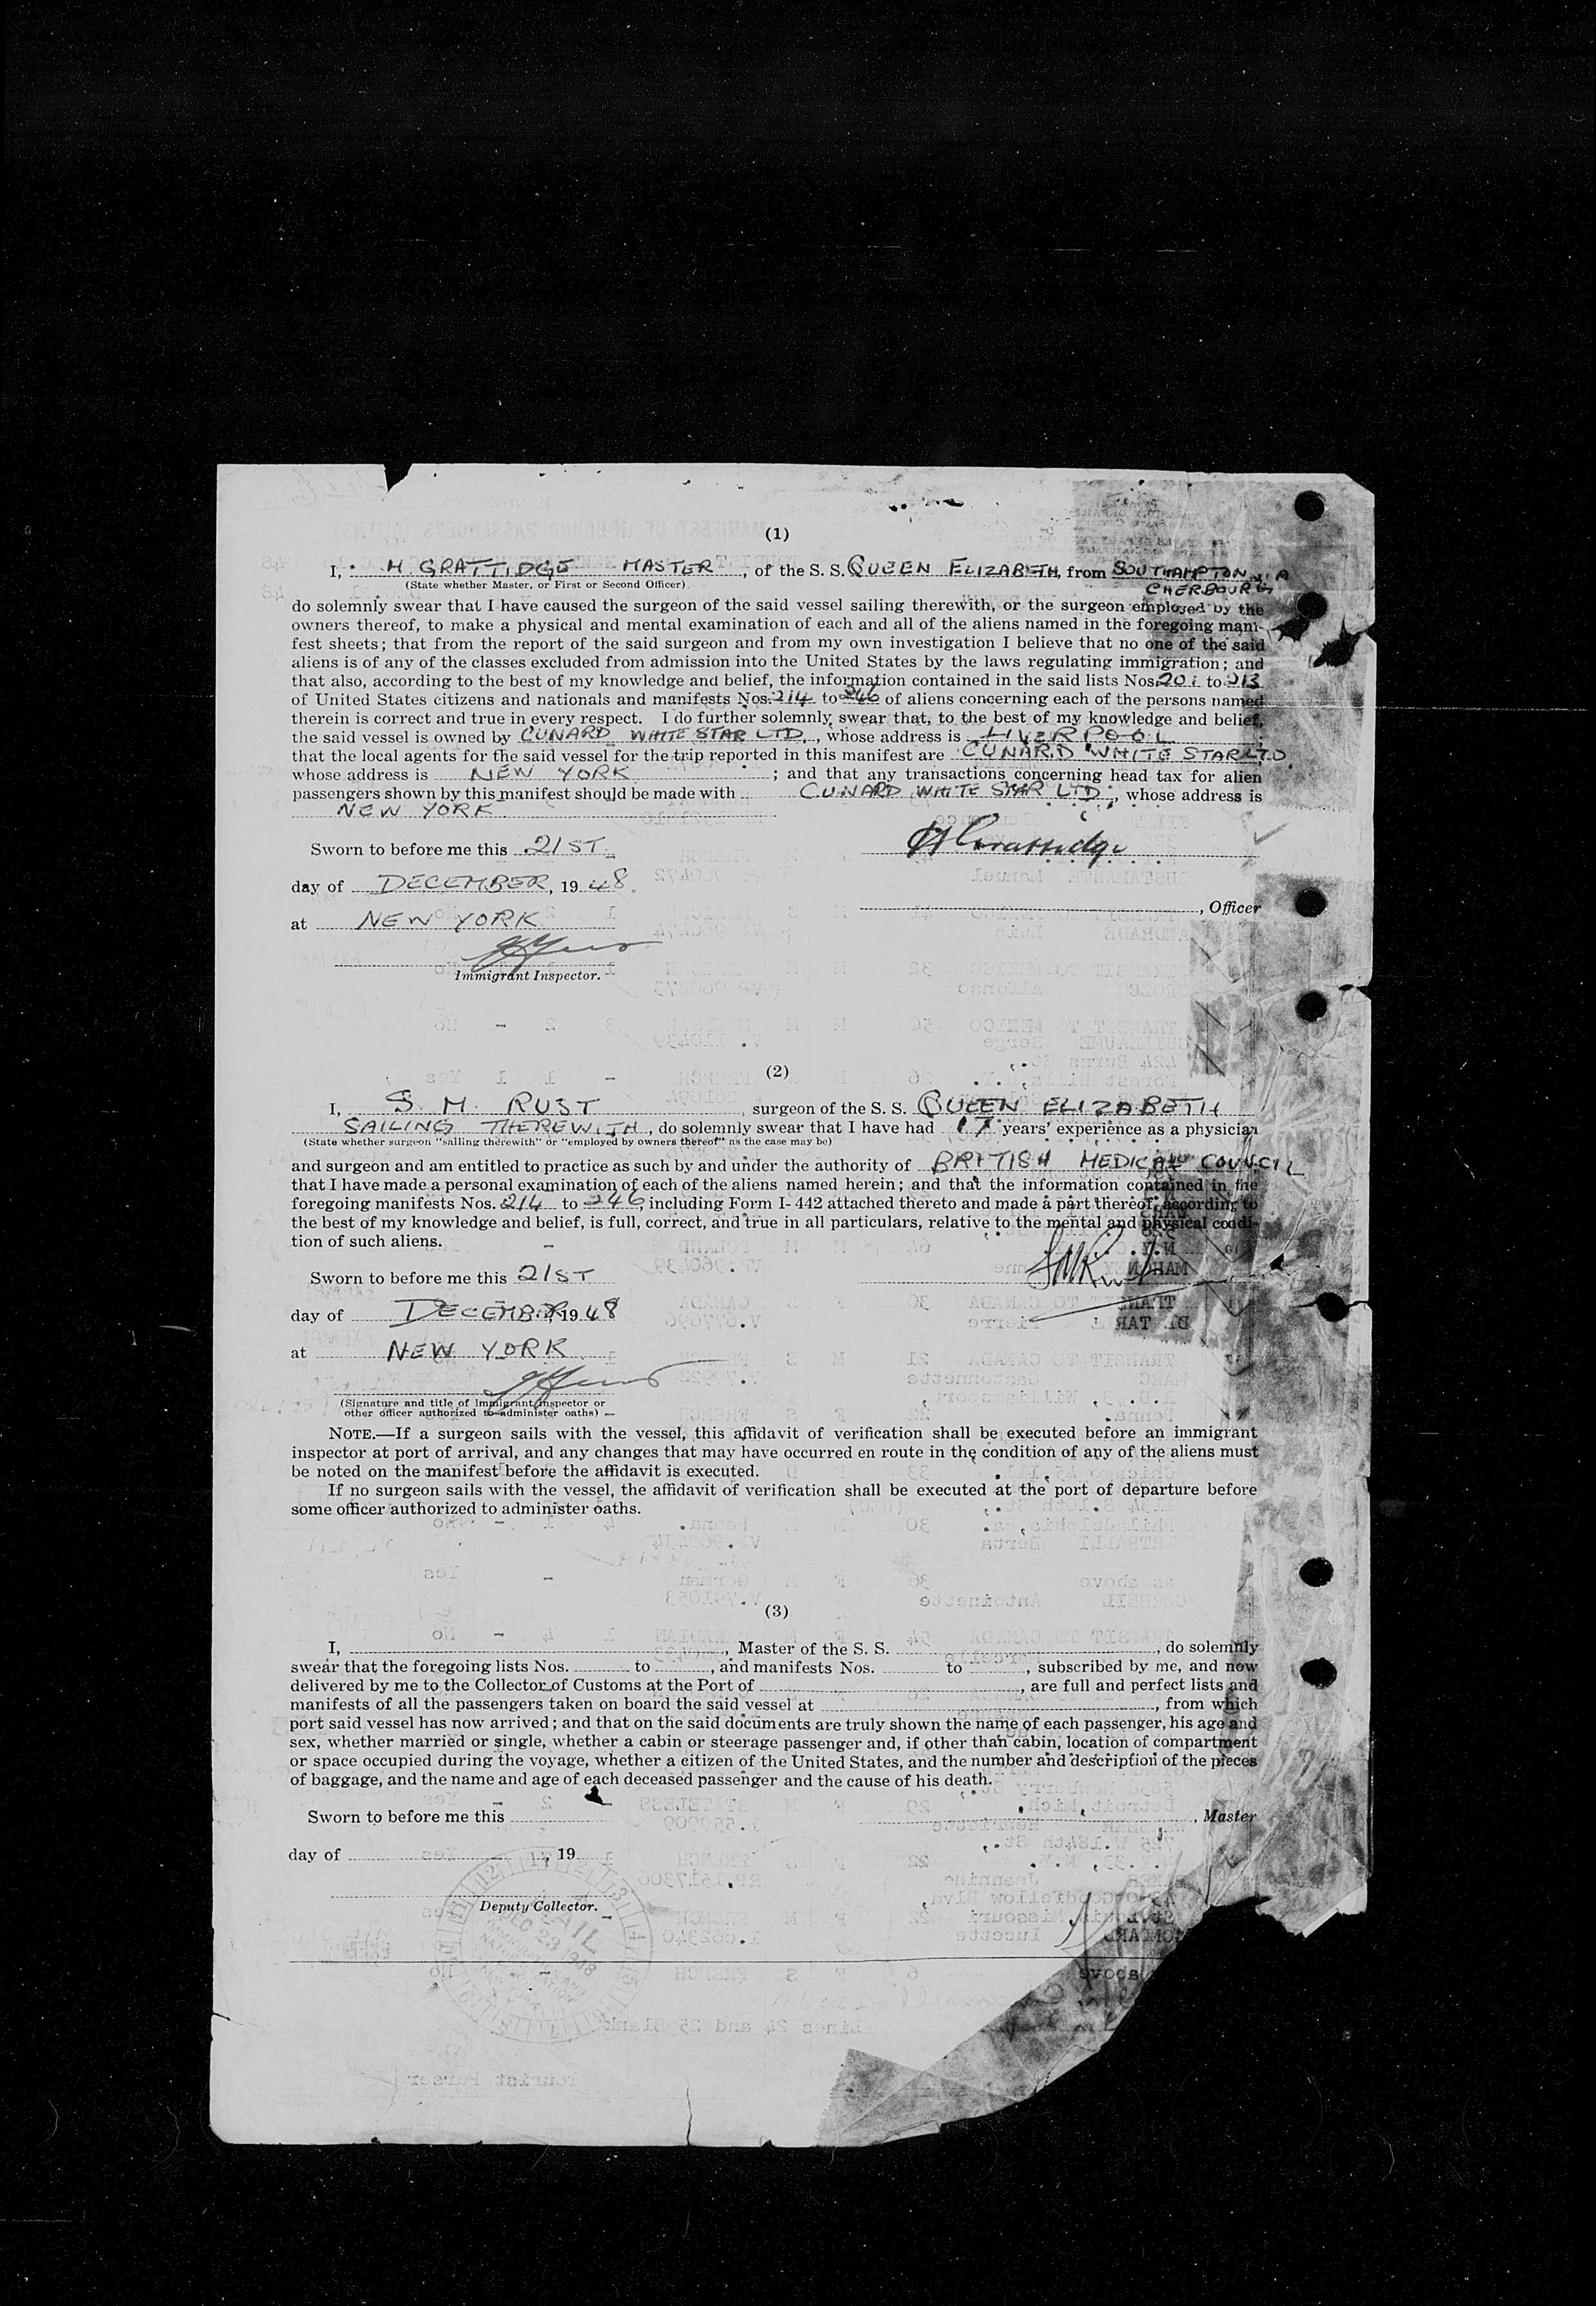 (1)
I, H GRATTIDGE MASTER, of the S. S. QUEEN ELIZABETH, from SOUTHAMPTON VIA
(State whether Master, or First or Second Officer) CHERBOURG
do solemnly swear that I have caused the surgeon of the said vessel sailing therewith, or the surgeon employed by the
owners thereof, to make a physical and mental examination of each and all of the aliens named in the foregoing mani-
fest sheets; that from the report of the said surgeon and from my own investigation I believe that no one of the said
aliens is of any of the classes excluded from admission into the United States by the laws regulating immigration; and
that also, according to the best of my knowledge and belief, the information contained in the said lists Nos. 201 to 213
of United States citizens and nationals and manifests Nos. 214 to 246 of aliens concerning each of the persons named
therein is correct and true in every respect. I do further solemnly swear that, to the best of my knowledge and belief,
the said vessel is owned by CUNARD WHITE STAR LTD., whose address is LIVERPOOL;
that the local agents for the said vessel for the trip reported in this manifest are CUNARD WHITE STAR LTD.
whose address is NEW YORK; and that any transactions concerning head tax for alien
passengers shown by this manifest should be made with CUNARD WHITE STAR LTD, whose address is
NEW YORK.
Sworn to before me this 21ST H Grattidge
day of DECEMBER, 19 48.
, Officer
at NEW YORK
Immigrant Inspector.
(2)
I, S. M. RUST, surgeon of the S. S. QUEEN ELIZABETH
SAILING THEREWITH, do solemnly swear that I have had 17 years' experience as a physician
(State whether surgeon "sailing therewith" or "employed by owners thereof" as the case may be)
and surgeon and am entitled to practice as such by and under the authority of BRITISH MEDICAL COUNCIL
that I have made a personal examination of each of the aliens named herein; and that the information contained in the
foregoing manifests Nos. 214 to 246, including Form I-442 attached thereto and made a part thereof, according to
the best of my knowledge and belief, is full, correct, and true in all particulars, relative to the mental and physical condi-
tion of such aliens.
Sworn to before me this 21ST SMRust
day of DECEMBER, 19 48
at NEW YORK
(Signature and title of immigrant inspector or
other officer authorized to administer oaths)
NOTE.—If a surgeon sails with the vessel, this affidavit of verification shall be executed before an immigrant
inspector at port of arrival, and any changes that may have occurred en route in the condition of any of the aliens must
be noted on the manifest before the affidavit is executed.
If no surgeon sails with the vessel, the affidavit of verification shall be executed at the port of departure before
some officer authorized to administer oaths.
(3)
I, , Master of the S. S. , do solemnly
swear that the foregoing lists Nos. to , and manifests Nos. to , subscribed by me, and now
delivered by me to the Collector of Customs at the Port of , are full and perfect lists and
manifests of all the passengers taken on board the said vessel at , from which
port said vessel has now arrived; and that on the said documents are truly shown the name of each passenger, his age and
sex, whether married or single, whether a cabin or steerage passenger and, if other than cabin, location of compartment
or space occupied during the voyage, whether a citizen of the United States, and the number and description of the pieces
of baggage, and the name and age of each deceased passenger and the cause of his death.
Sworn to before me this , Master
day of , 19
Deputy Collector.